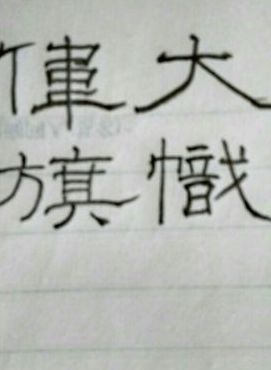 偉大
旗幟